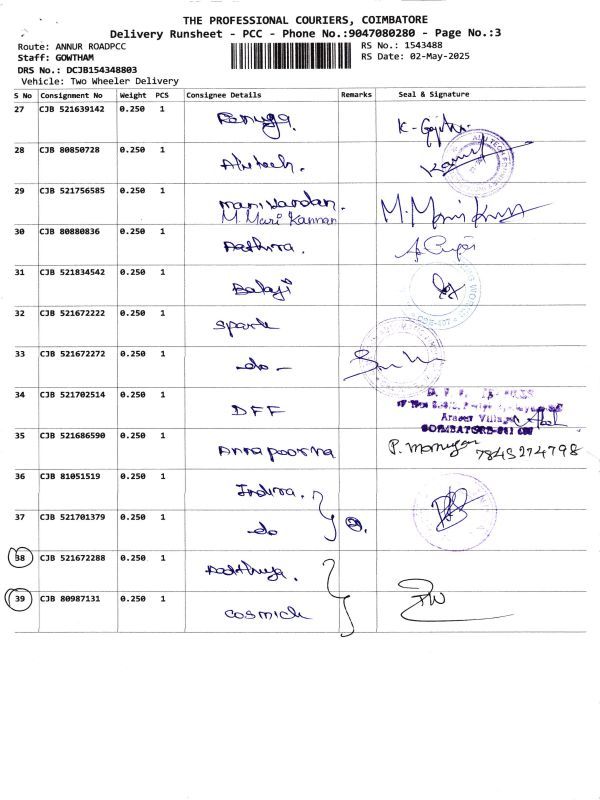 THE PROFESSIONAL COURIERS, COIMBATORE
Delivery Runsheet - PCC - Phone No.:9047080280 - Page No.:3
Route: ANNUR ROADPCC RS No.: 1543488
Staff: GOWTHAM RS Date: 02-May-2025
DRS No.: DCJB154348803
Vehicle: Two Wheeler Delivery
S No Consignment No Weight PCS Consignee Details Remarks Seal & Signature
27 CJB 521639142 0.250 1 Renuga.
28 CJB 80850728 0.250 1
29 CJB 521756585 0.250 1 Mani Vardan. M. Mari Kannan
30 CJB 80880836 0.250 1
31 CJB 521834542 0.250 1 Balaji
32 CJB 521672222 0.250 1 Spark
33 CJB 521672272 0.250 1 -do-
34 CJB 521702514 0.250 1 DFF
COIMBATORE
35 CJB 521686590 0.250 1 Annapoorna P. 7845274798
36 CJB 81051519 0.250 1 Indira.
37 CJB 521701379 0.250 1 do 2.
38 CJB 521672288 0.250 1
39 CJB 80987131 0.250 1 Cosmich